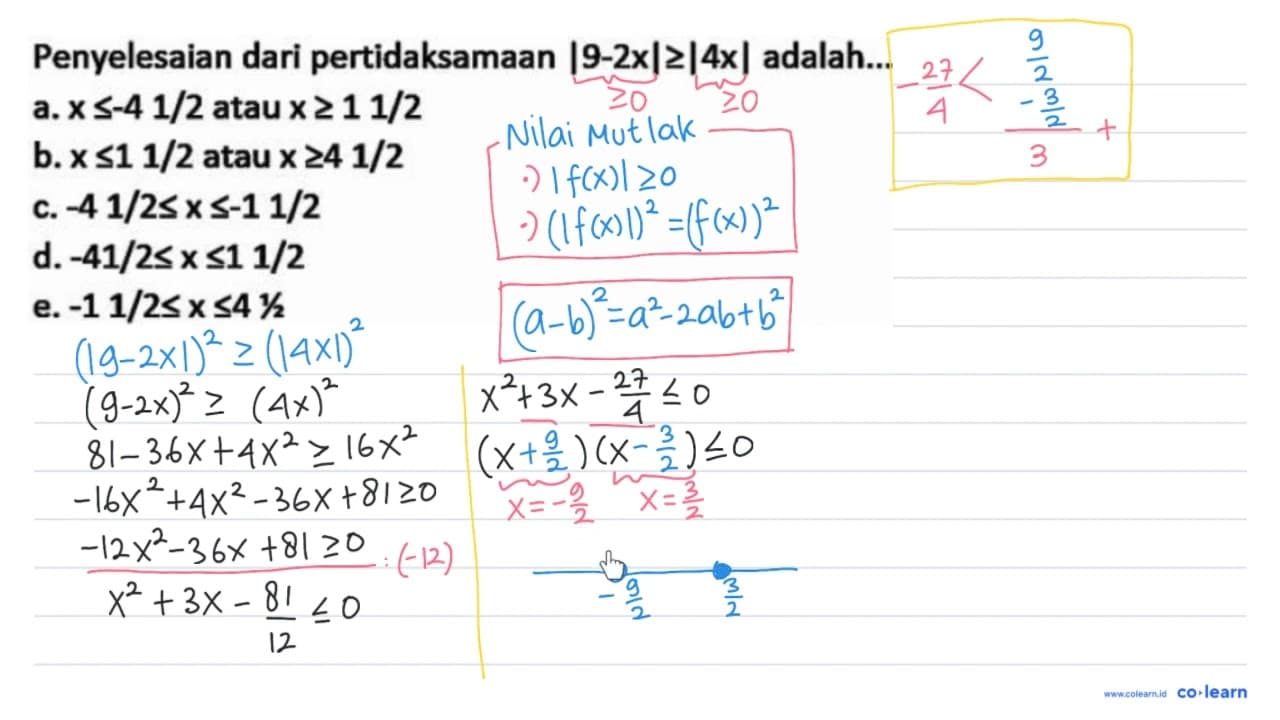 Penyelesaian dari pertidaksamaan |9-2x|≥|4x| adalah...
≥0 ≥0
a. x ≤-4 1/2 atau x ≥ 1 1/2
b. x ≤1 1/2 atau x ≥4 1/2
c. -4 1/2≤ x ≤-1 1/2
d. -41/2≤ x ≤1 1/2
e. -1 1/2≤ x ≤4 ½
Nilai Mutlak
·) |f(x)| ≥0
·) (|f(x)|)² =(f(x))²
(a-b)²=a²-2ab+b²
-27/4 <
9/2
-3/2
+
3
(|9-2x|)² ≥ (|4x|)²
(9-2x)² ≥ (4x)²
81-36x+4x² ≥ 16x²
-16x²+4x²-36x+81≥0
-12x²-36x+81≥0
:(-12)
x²+3x-81/12 ≤0
x²+3x-27/4 ≤0
(x+9/2)(x-3/2)≤0
x=-9/2 x=3/2
-9/2 3/2
www.colearn.id co·learn